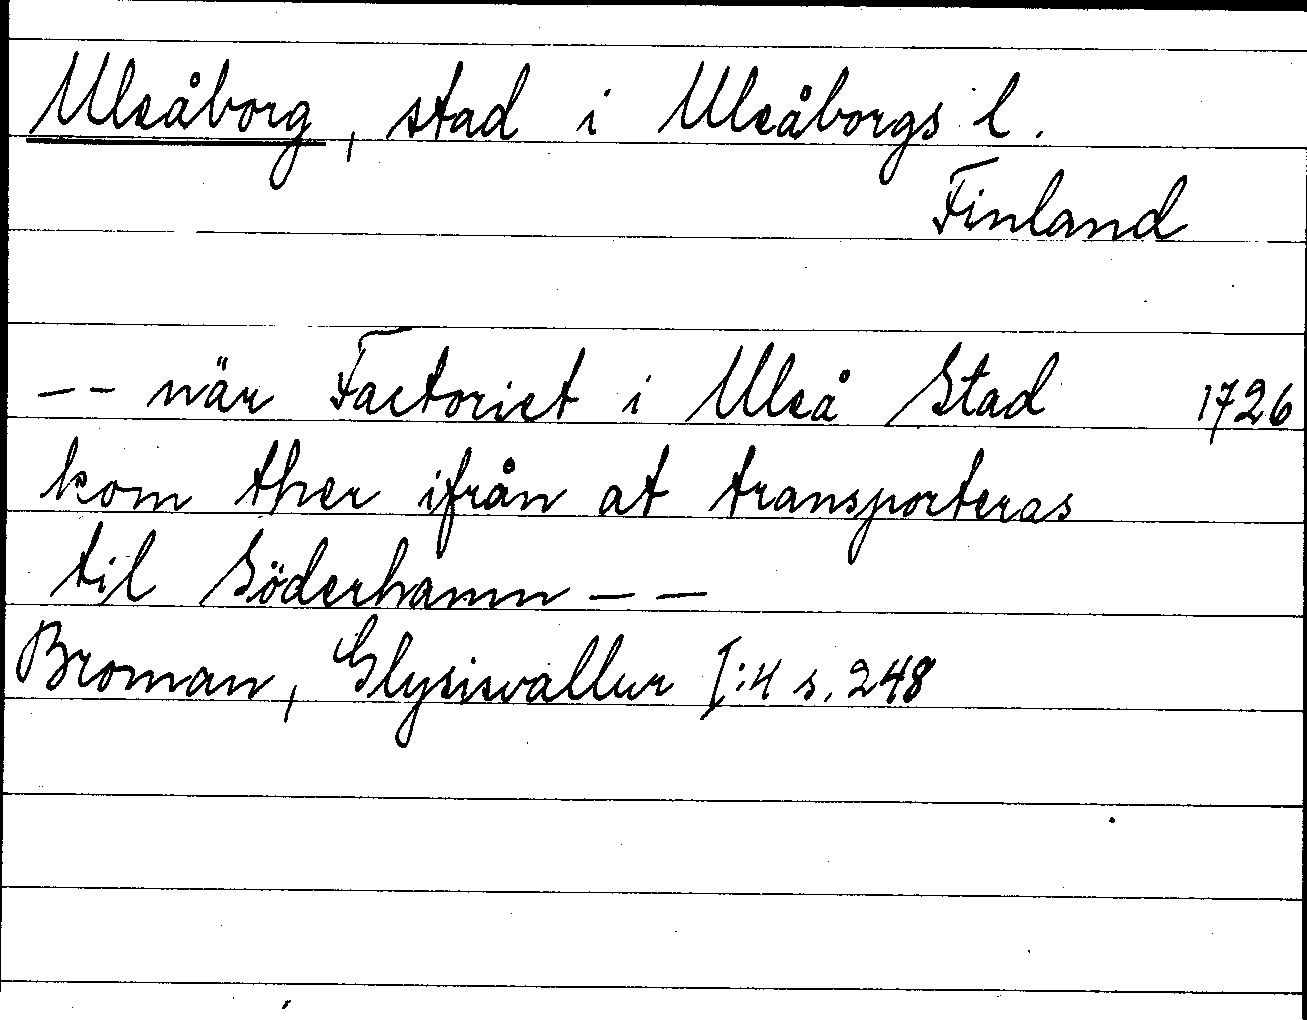 Uleåborg, stad i Uleåborgs l.
Finland
-- när Factoriet i Uleå Stad 1726
kom ther ifrån at transporteras
til Söderhamn --
Broman, Glysisvallur I:4 s. 248